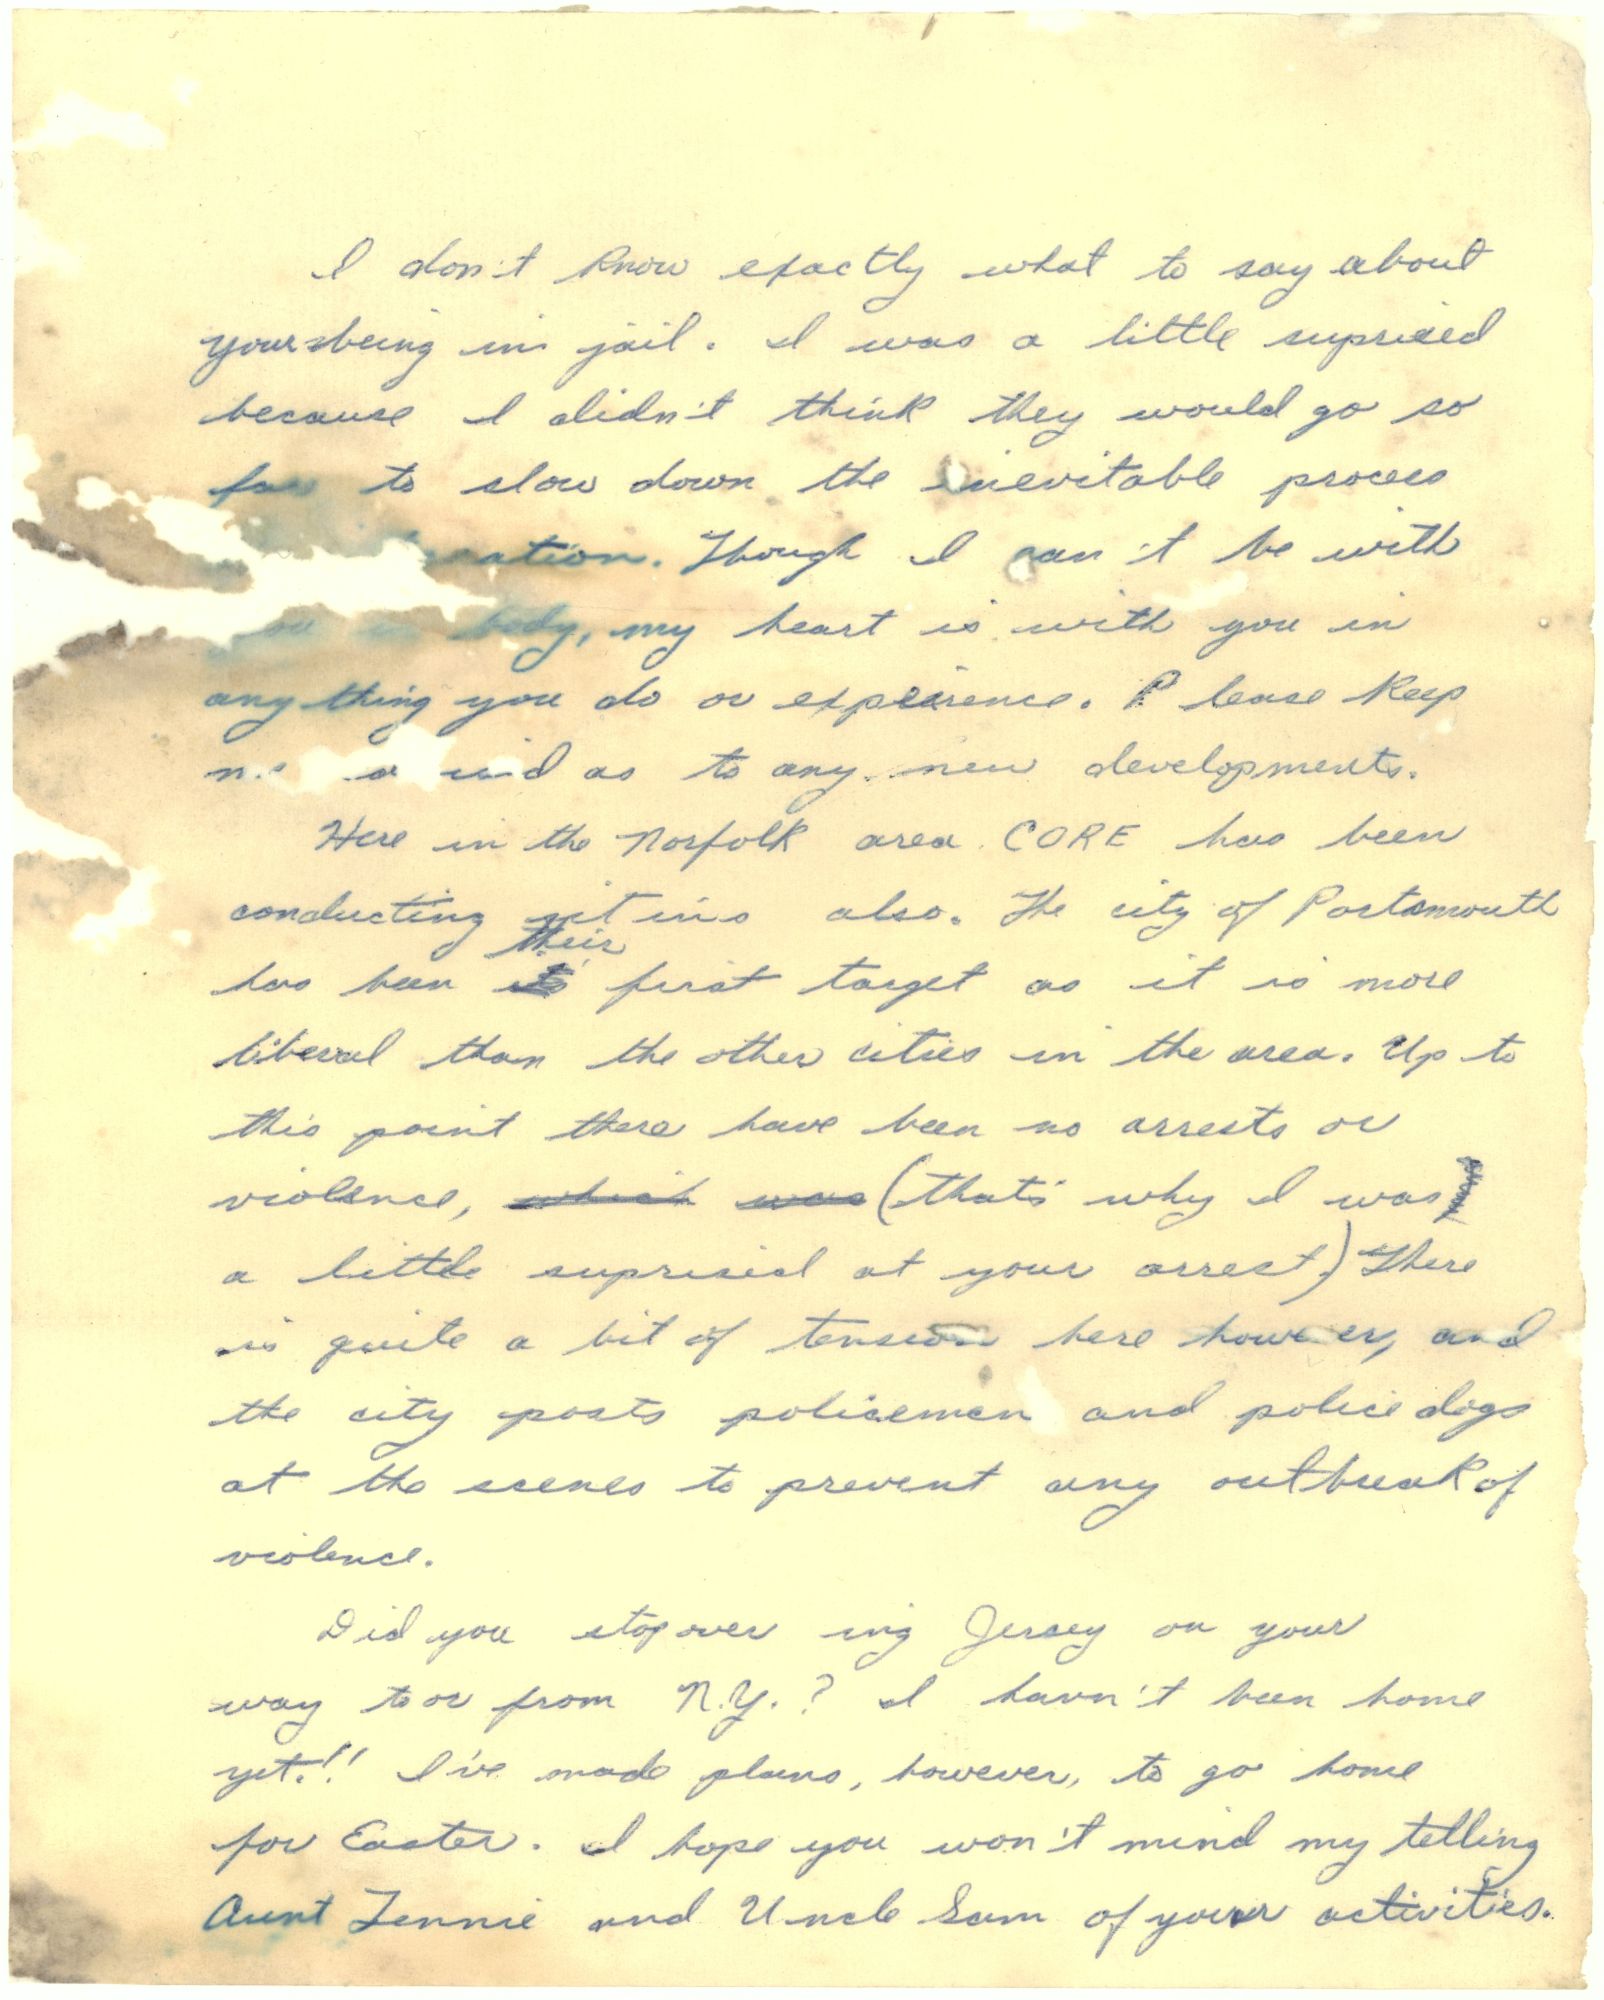 I don't know exactly what to say about
your being in jail. I was a little suprised
because I didn't think they would go so
far to slow down the inevitable process
Though I can't be with
you in body, my heart is with you in
anything you do or expierence. Please keep
as to any new developments.
Here in the Norfolk area CORE has been
conducting sit ins also. The city of Portsmouth
their
has been its first target as it is more
liberal than the other cities in the area. Up to
this point there have been no arrests or
violence, which was (that's why I was
a little suprised at your arrest.) There
is quite a bit of tension here however, and
the city posts policemen and police dogs
at the scenes to prevent any outbreak of
violence.
Did you stop over ing Jersey on your
way to or from N.Y.? I havn't been home
yet!! I've made plans, however, to go home
for Easter. I hope you won't mind my telling
Aunt Jennie and Uncle Sam of your activities.